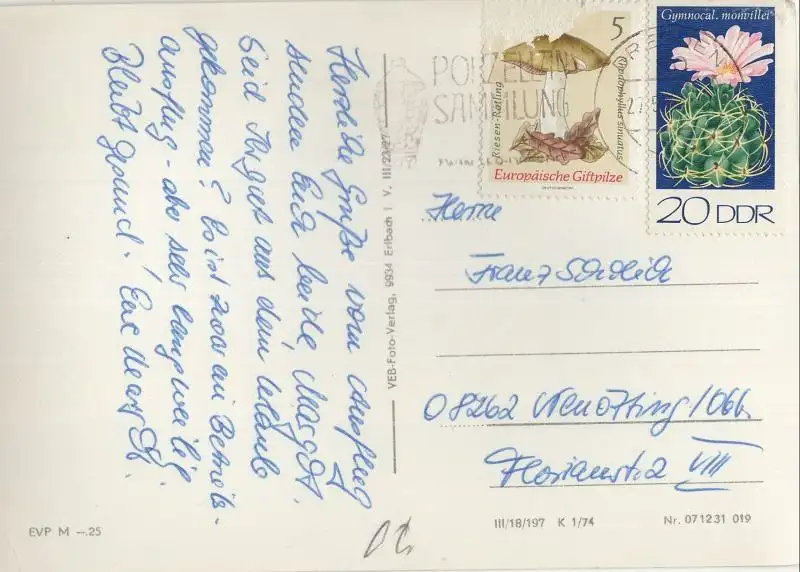 Herzliche Grüße vom Ausflug
senden Euch beide Margot.
Seid Ihr gut aus dem Urlaub
gekommen? Es ist zwar ein Betriebs-
ausflug - aber sehr langweilig
Bleibt gesund! Eure
VEB-Foto-Verlag, 9934 Erlbach 1 V. III/2027
EVP M -.25
5
Riesen-Rötling
Rhodophyllus sinuatus
Europäische Giftpilze
Gymnocal. monvillei
20 DDR
PORZELLAN
SAMMLUNG
DRESDEN
Herrn
Franz
08262 Neuötting/Obb
Florianstr. 2 VIII
III/18/197 K 1/74
Nr. 071231 019